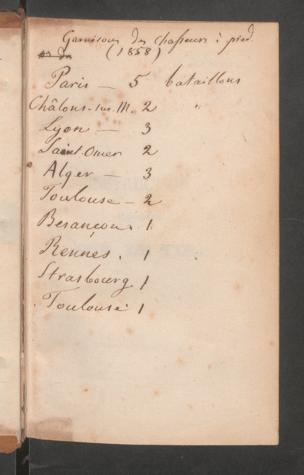 Garnisons des chasseurs à pied
(1858)
Paris — 5 bataillons
Châlons-sur-M. 2 "
Lyon — 3
Saint-Omer 2
Alger — 3
Toulouse — 2
Besançon. 1
Rennes. 1
Strasbourg 1
Toulouse 1